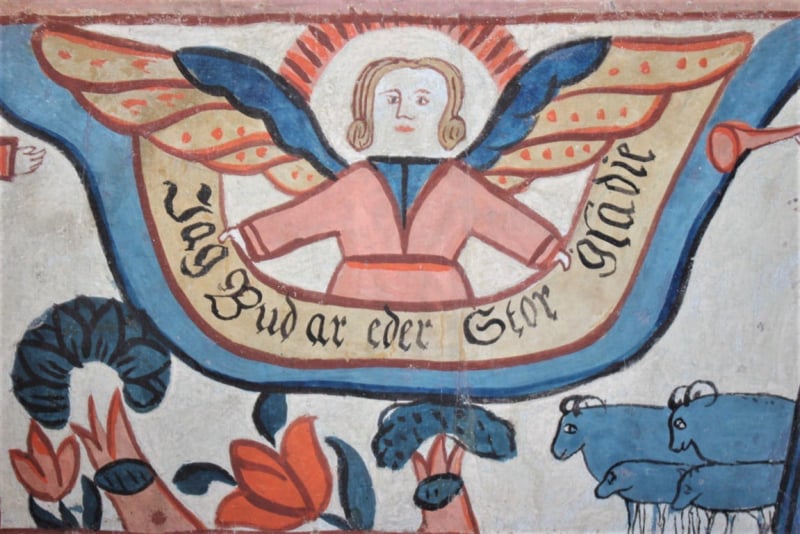 Jag Bud ar eder Stor gladie